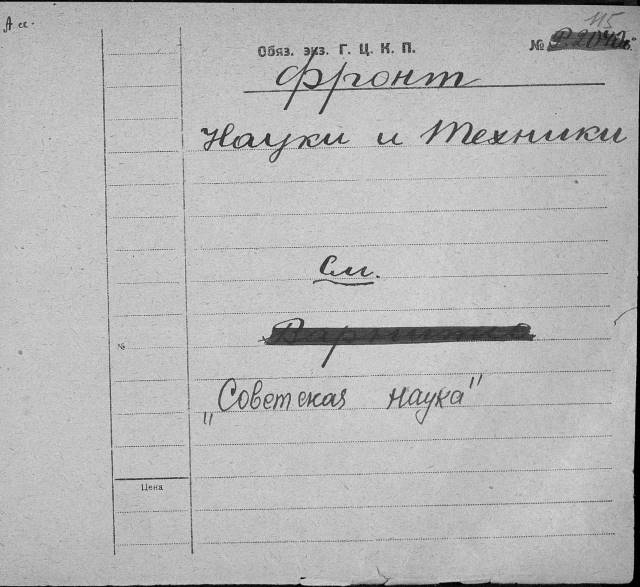 115
Обяз. экз. Г. Ц. К. П. №
Фронт
Науки и Техники
См.
№
„Советская наука"
Цена